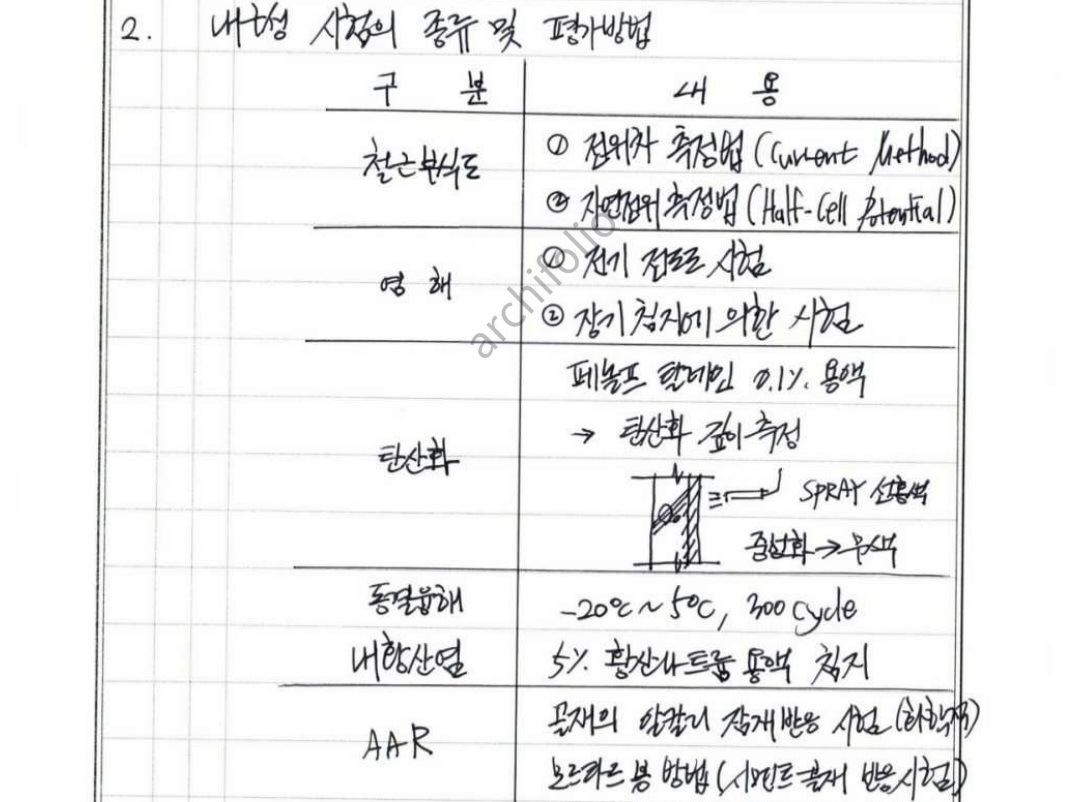 2. 내구성 시험의 종류 및 평가방법
구 분 내 용
철근부식도 ① 전위차 측정법 (Current Method)
② 자연전위 측정법 (Half-Cell Potential)
염 해 ① 전기 전도도 시험
② 장기침지에 의한 시험
탄산화 페놀프탈레인 0.1%. 용액
→ 탄산화 깊이측정
SPRAY 선홍색
중성화 → 무색
동결융해 -20℃ ~ 5℃, 300 cycle
내황산염 5%. 황산나트륨 용액 침지
AAR 골재의 알칼리 잠재반응 시험 (화학적)
모르타르 봉 방법 (시멘트골재 반응시험)
archifolio